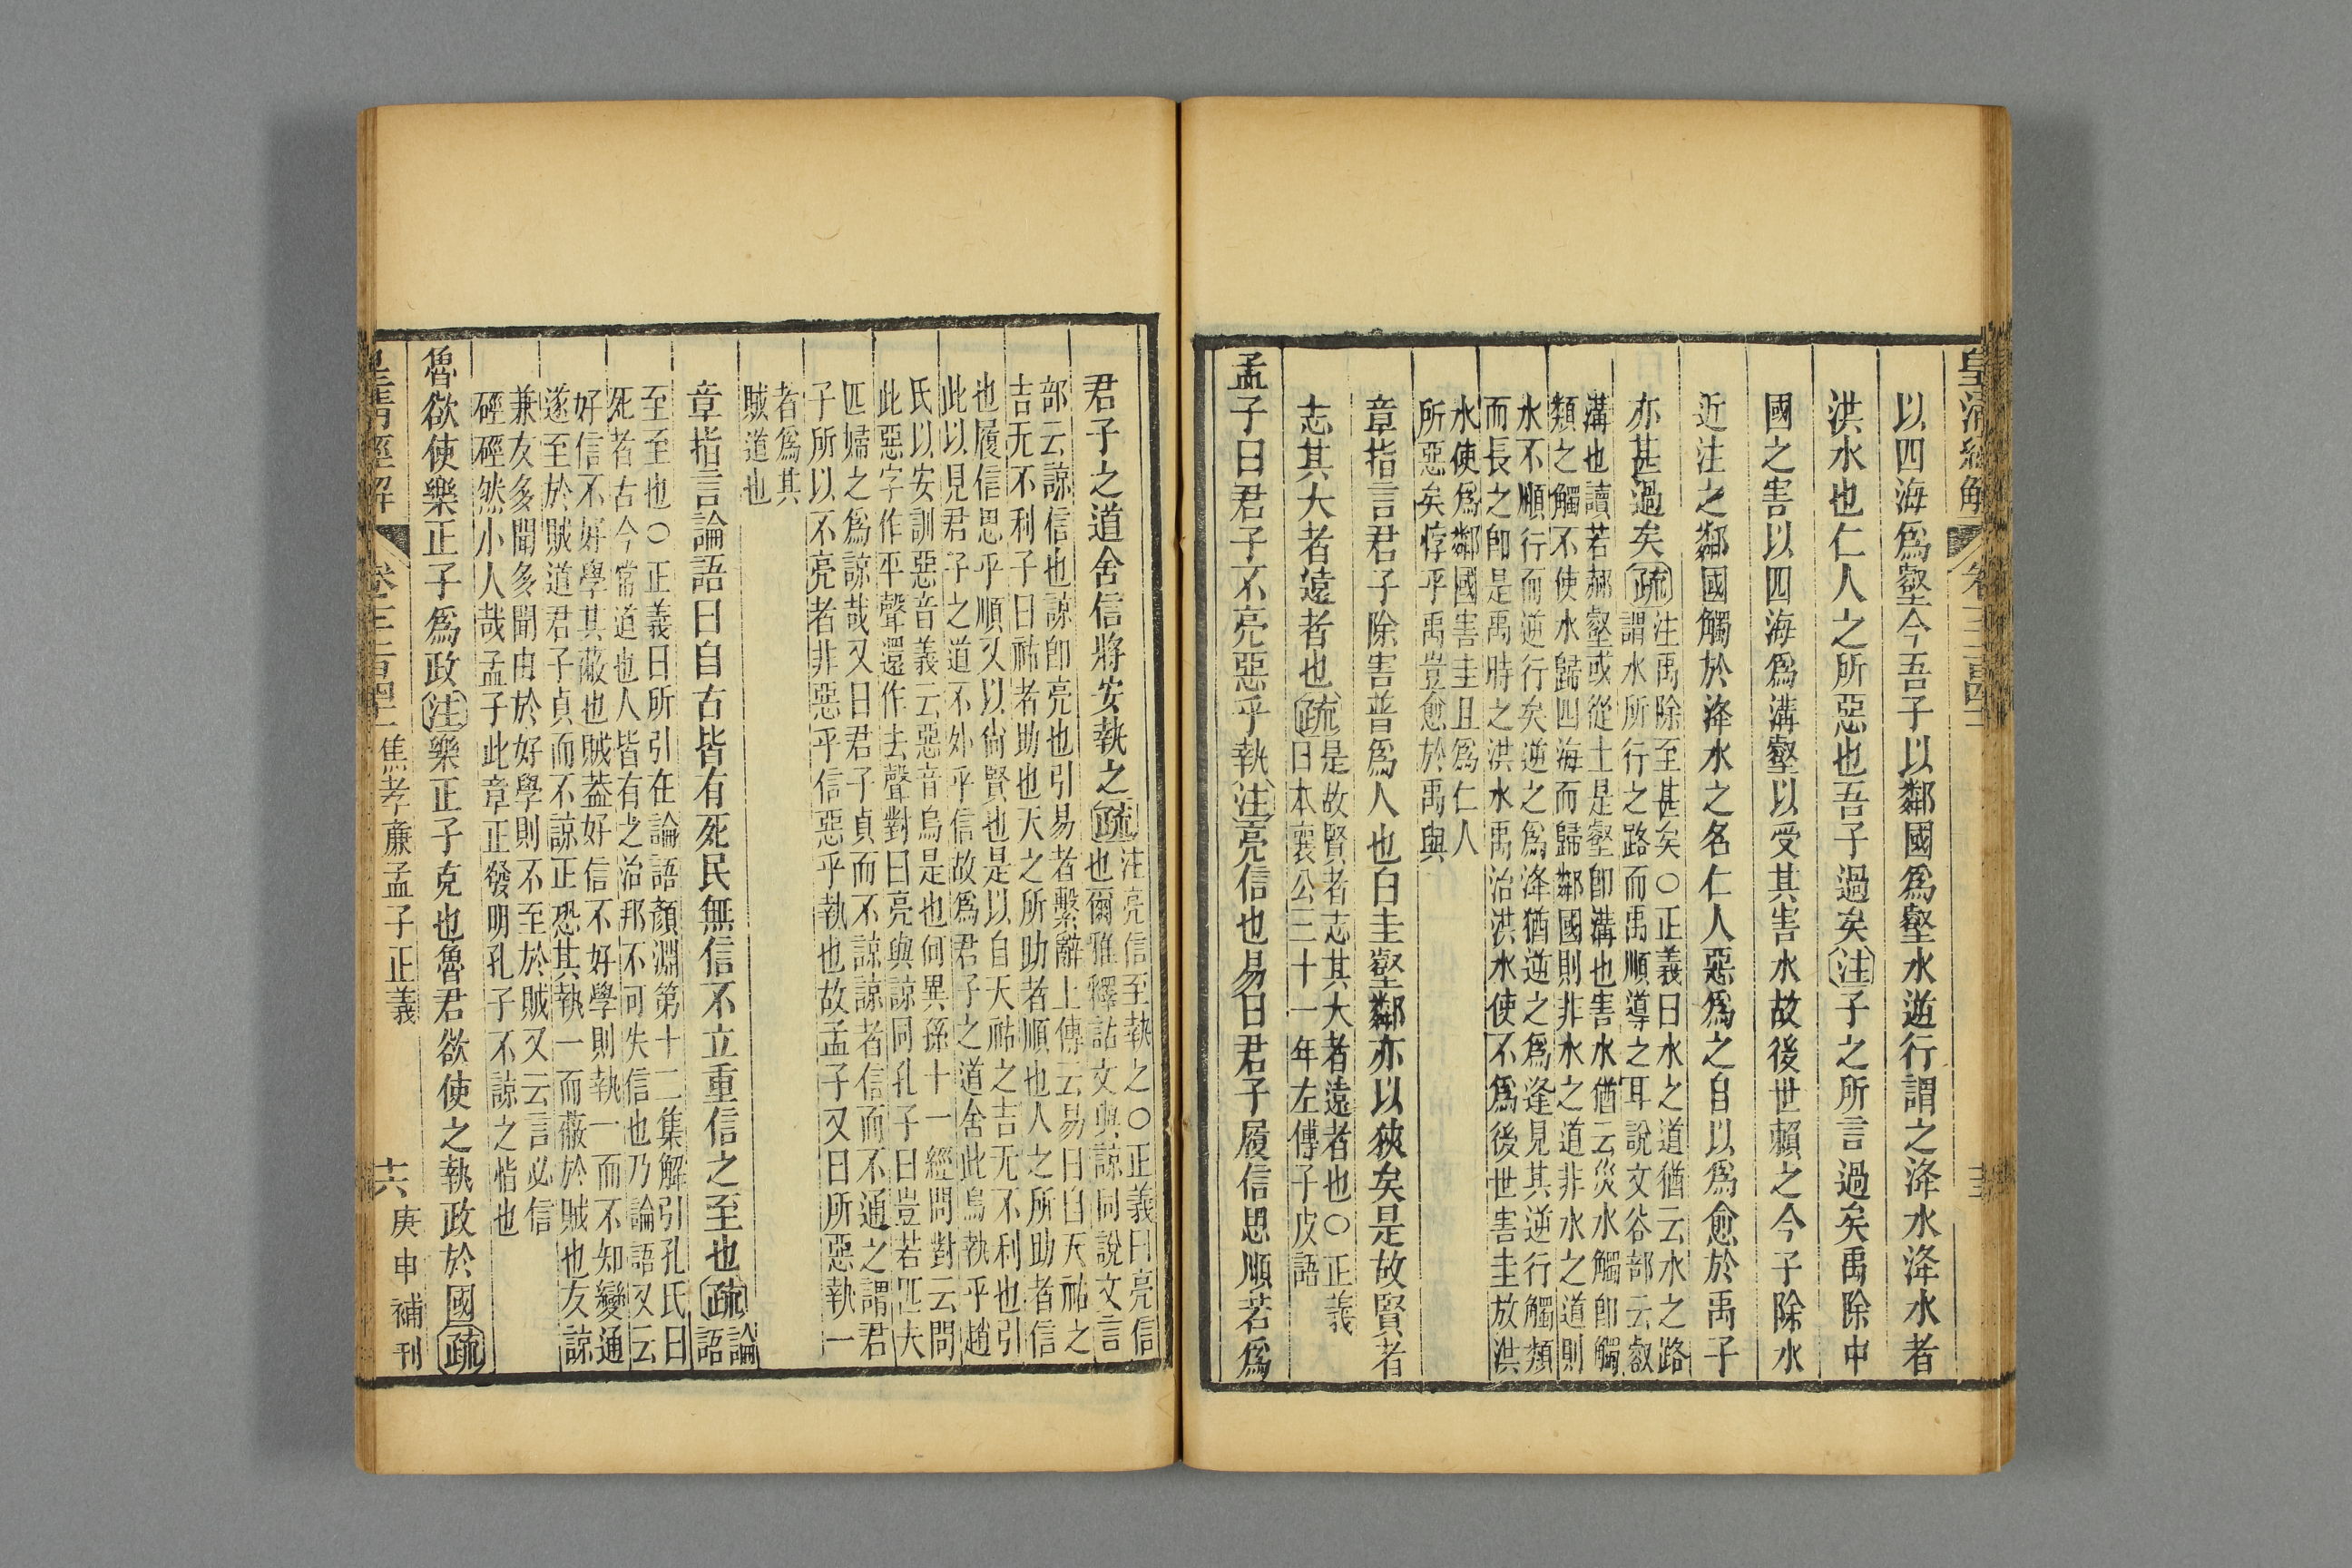 皇清經解
卷
以四海爲壑今吾子以鄰國爲壑水逆行謂之洚水洚水者
洪水也仁人之所惡也吾子過矣注子之所言過矣禹除中
國之害以四海爲溝壑以受其害水故後世賴之今子除水
近注之鄰國觸於洚水之名仁人惡爲之自以爲愈於禹子
亦甚過矣疏
注禹除至甚矣○正義曰水之道猶云水之路
謂水所行之路而禹順導之耳說文谷部云㕡
溝也讀若郝壑或從土是壑卽溝也害水猶云災水觸卽觸
類之觸不使水歸四海而歸鄰國則非水之道非水之道則
水不順行而逆行矣逆之爲洚猶逆之爲逢見其逆行觸類
而長之卽是禹時之洪水禹治洪水使不爲後世害圭放洪
水使爲鄰國害圭且爲仁人
所惡矣惇乎禹豈愈於禹與
章指言君子除害普爲人也白圭壑鄰亦以狹矣是故賢者
志其大者遠者也疏
是故賢者志其大者遠者也○正義
曰本襄公三十一年左傳子皮語
孟子曰君子不亮惡乎執注亮信也易曰君子履信思順若爲
君子之道舍信將安執之疏
注亮信至執之○正義曰亮信
也爾雅釋詁文與諒同說文言
部云諒信也諒卽亮也引易者繫辭上傳云易曰自天祐之
吉无不利子曰祐者助也天之所助者順也人之所助者信
也履信思乎順又以尙賢也是以自天祐之吉无不利也引
此以見君子之道不外乎信故爲君子之道舍此烏執乎趙
氏以安訓惡音義云惡音烏是也何異孫十一經問對云問
此惡字作平聲還作去聲對曰亮與諒同孔子曰豈若匹夫
匹婦之爲諒哉又曰君子貞而不諒諒者信而不通之謂君
子所以不亮者非惡乎信惡乎執也故孟子又曰所惡執一
者爲其
賊道也
章指言論語曰自古皆有死民無信不立重信之至也疏
論
語
至至也○正義曰所引在論語顏淵第十二集解引孔氏曰
死者古今常道也人皆有之治邦不可失信也乃論語又云
好信不好學其蔽也賊葢好信不好學則執一而不知變通
遂至於賊道君子貞而不諒正恐其執一而蔽於賊也友諒
兼友多聞多聞由於好學則不至於賊又云言必信
硜硜然小人哉孟子此章正發明孔子不諒之恉也
魯欲使樂正子爲政注樂正子克也魯君欲使之執政於國疏
皇清經解
卷 焦孝廉孟子正義
庚申補刊